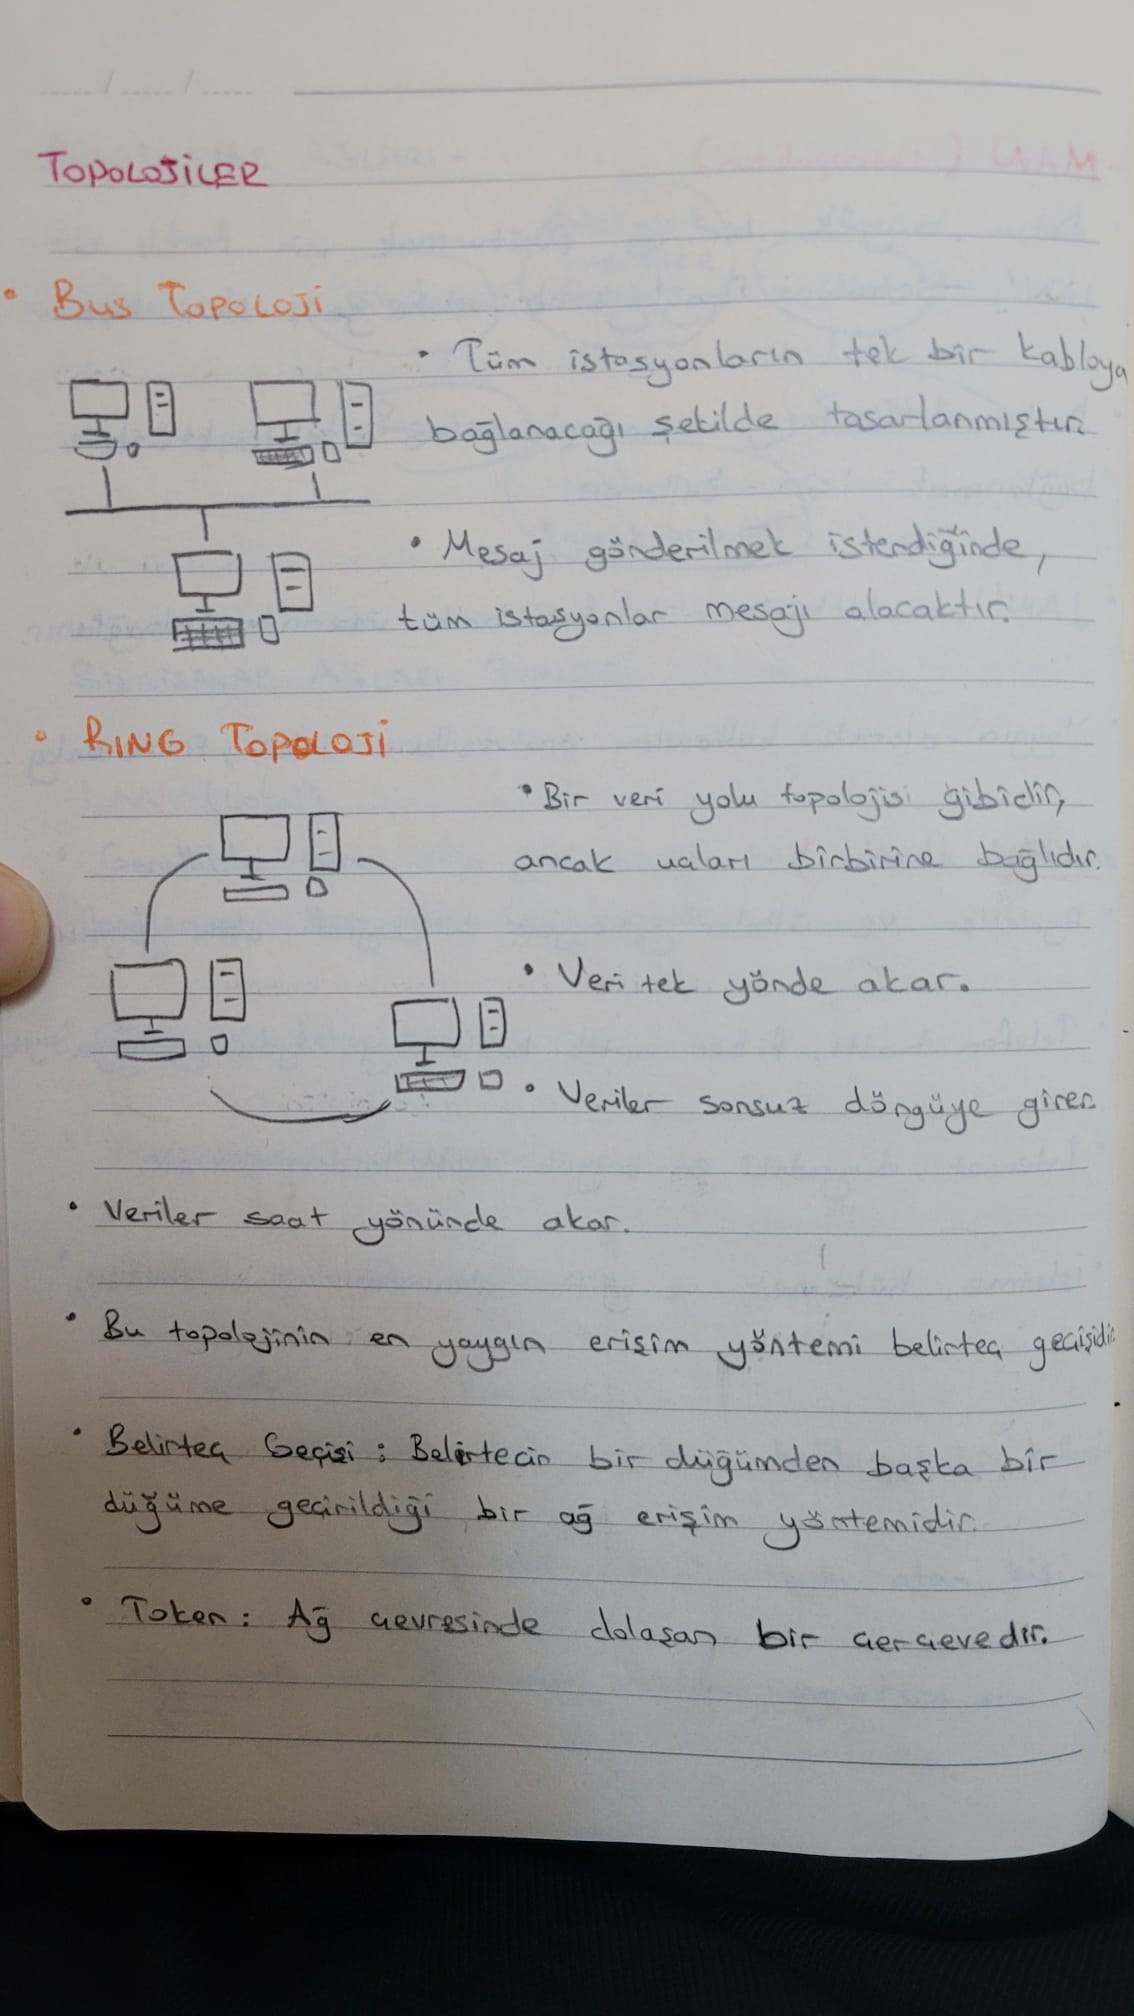 TOPOLOJİLER
• BUS TOPOLOJİ
• Tüm istasyonların tek bir kabloya
bağlanacağı şekilde tasarlanmıştır.
• Mesaj gönderilmek istendiğinde,
tüm istasyonlar mesajı alacaktır.
• RING TOPOLOJİ
• Bir veri yolu topolojisi gibidir,
ancak uçları birbirine bağlıdır.
• Veri tek yönde akar.
• Veriler sonsuz döngüye girer.
• Veriler saat yönünde akar.
• Bu topolojinin en yaygın erişim yöntemi belirteç geçişidir
• Belirteç Geçişi : Belirtecin bir düğümden başka bir
düğüme geçirildiği bir ağ erişim yöntemidir.
• Token : Ağ çevresinde dolaşan bir çerçevedir.